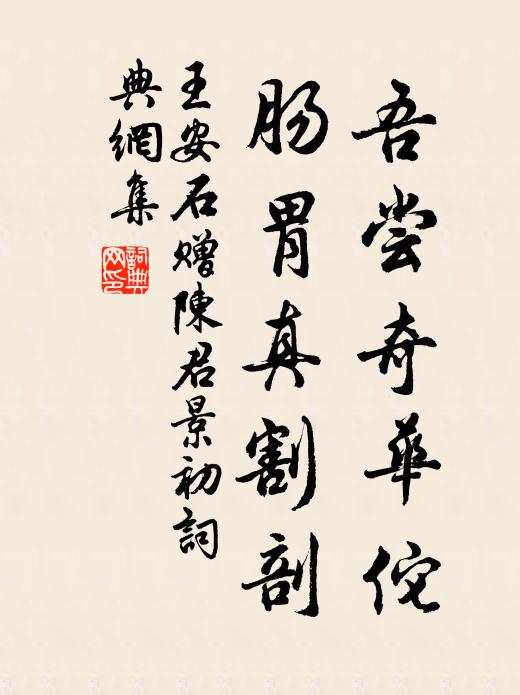 吾尝奇華佗
肠胃真割剖
王安石赠陳君景初詞
典網集
詞典網印